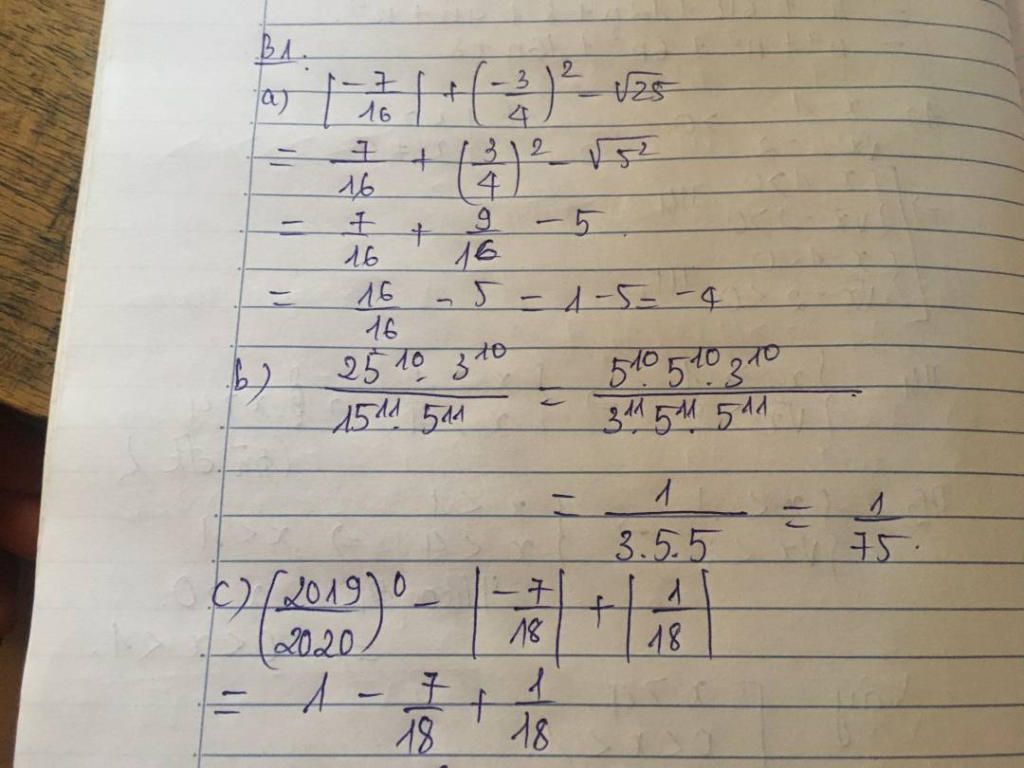 B1.
a) |-7/16| + (-3/4)² - √25
= 7/16 + (3/4)² - √5²
= 7/16 + 9/16 - 5
= 16/16 - 5 = 1 - 5 = -4
b) 25¹⁰. 3¹⁰/15¹¹. 5¹¹ = 5¹⁰. 5¹⁰. 3¹⁰/3¹¹. 5¹¹. 5¹¹
= 1/3.5.5 = 1/75.
c) (2019/2020)⁰ - |-7/18| + |1/18|
= 1 - 7/18 + 1/18